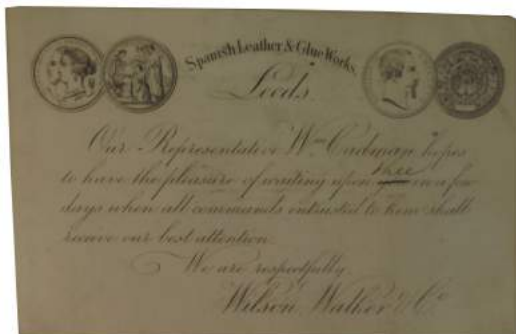 Spanish Leather & Glue Works,
Leeds.
Our Representative Wm. Cadman hopes
to have the pleasure of waiting upon thee in a few
days when all commands entrusted to him shall
receive our best attention.
We are respectfully
Wilson, Walker & Co.